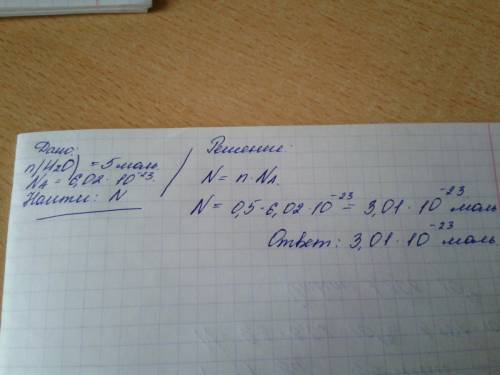 Дано:
n(H₂O) = 5 моль.
Nₐ = 6,02 · 10⁻²³.
Найти: N
Решение:
N = n · Nₐ.
N = 0,5 · 6,02 · 10⁻²³ = 3,01 · 10⁻²³ моль
Ответ: 3,01 · 10⁻²³ моль.